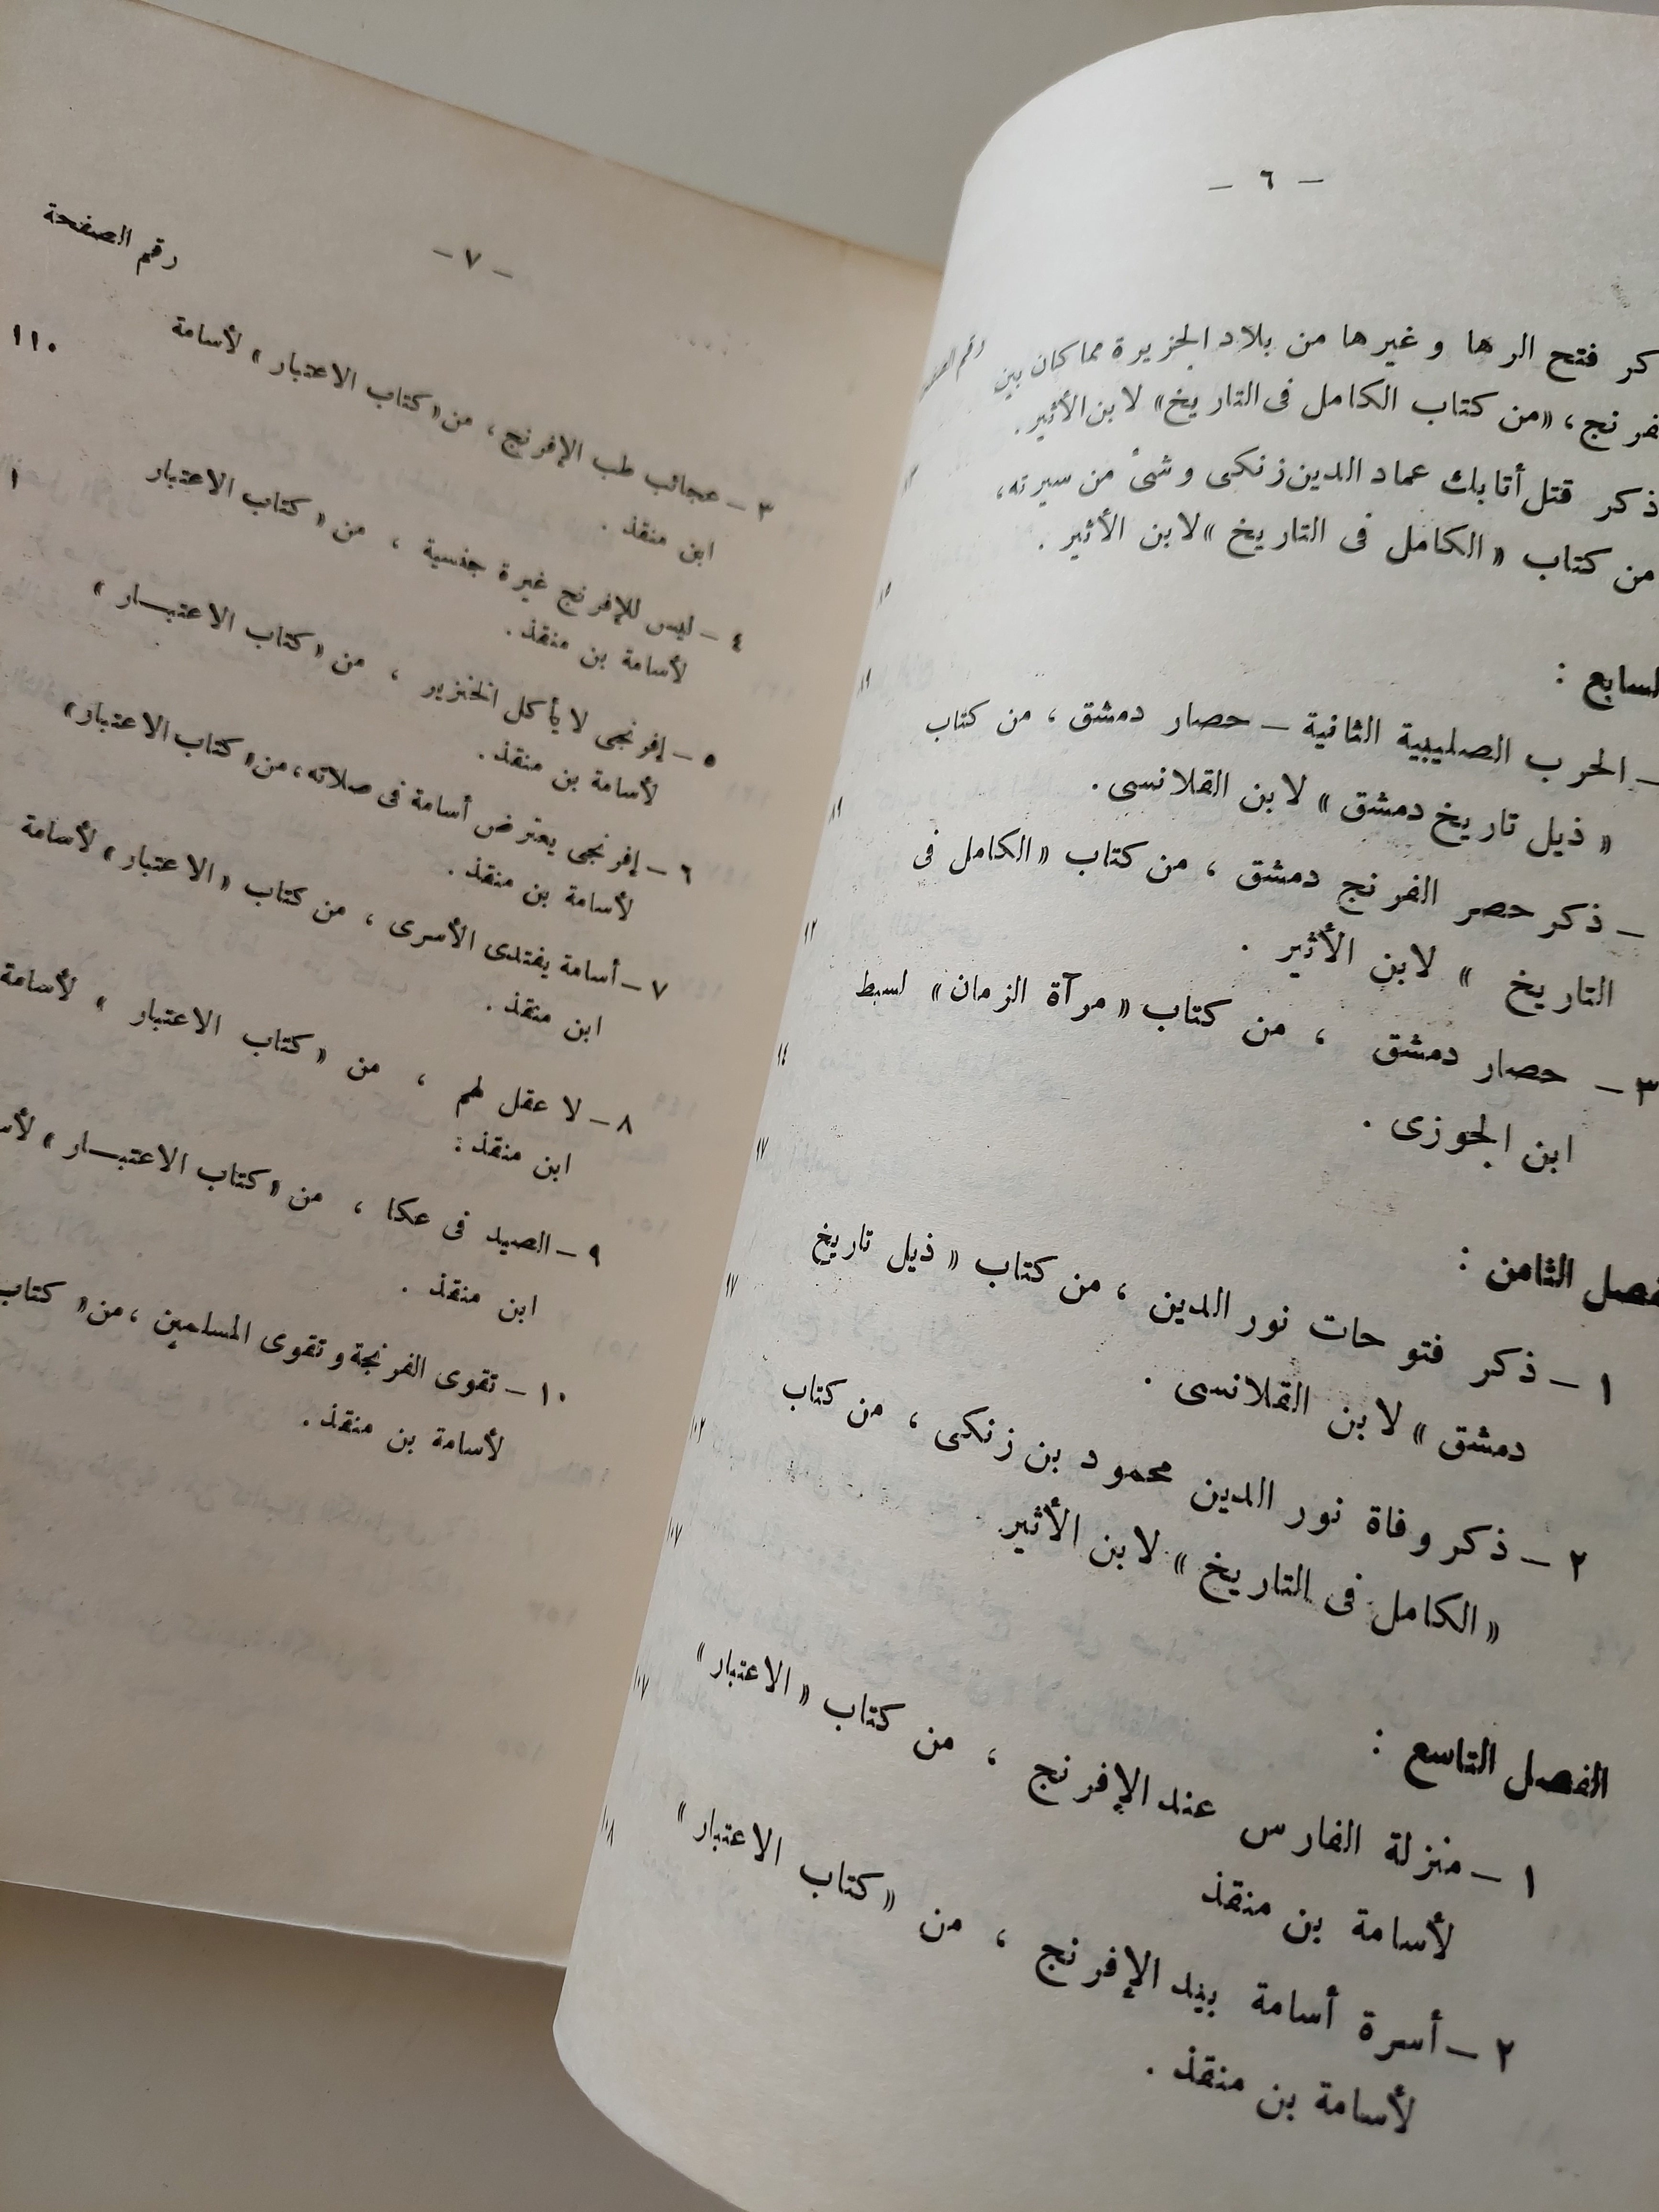 - ٦ -
فتح الرها وغيرها من بلاد الجزيرة مما كان بين
«من كتاب الكامل فى التاريخ» لابن الأثير.
ذكر قتل أتابك عماد الدين زنكى وشىْ من سيرته،
من كتاب «الكامل فى التاريخ» لابن الأثير .
– الحرب الصليبية الثانية – حصار دمشق ، من كتاب
« ذيل تاريخ دمشق » لابن القلانسى .
– ذكر حصر الفرنج دمشق ، من كتاب «الكامل فى
التاريخ » لابن الأثير .
٣ – حصار دمشق ، من كتاب « مرآة الزمان» لسبط
ابن الجوزى .
الثامن :
١ – ذكر فتوحات نور الدين ، من كتاب « ذيل تاريخ
دمشق » لابن القلانسى .
٢ – ذكر وفاة نور الدين محمود بن زنكى ، من كتاب
« الكامل فى التاريخ » لابن الأثير
الفصل التاسع :
١ – منزلة الفارس عند الإفرنج ، من كتاب « الاعتبار »
لأسامة بن منقذ
٢ – أسرة أسامة بيد الإفرنج ، من « كتاب الاعتبار »
لأسامة بن منقذ .
- ٧ -
رقم الصفحة
٣ – عجائب طب الإفرنج ، من «كتاب الاعتبار » لأسامة
ابن منقذ .
١١٠
٤ – ليس للإفرنج غيرة جنسية ، من « كتاب الاعتبار
لأسامة بن منقذ .
٥ – إفرنجى لا يأكل الخنزير ، من « كتاب الاعتبار »
لأسامة بن منقذ .
٦ – إفرنجى يعترض أسامة فى صلاته ، من « كتاب الاعتبار»
لأسامة بن منقذ .
٧ – أسامة يفتدى الأسرى ، من كتاب « الاعتبار » لأسامة
ابن منقذ .
٨ – لا عقل لهم ، من « كتاب الاعتبار » لأسامة
ابن منقذ :
٩ – الصيد فى عكا ، من « كتاب الاعتبار »
ابن منقذ .
١٠ – تقوى الفرنجة وتقوى المسلمين ، من « كتاب
لأسامة بن منقذ .